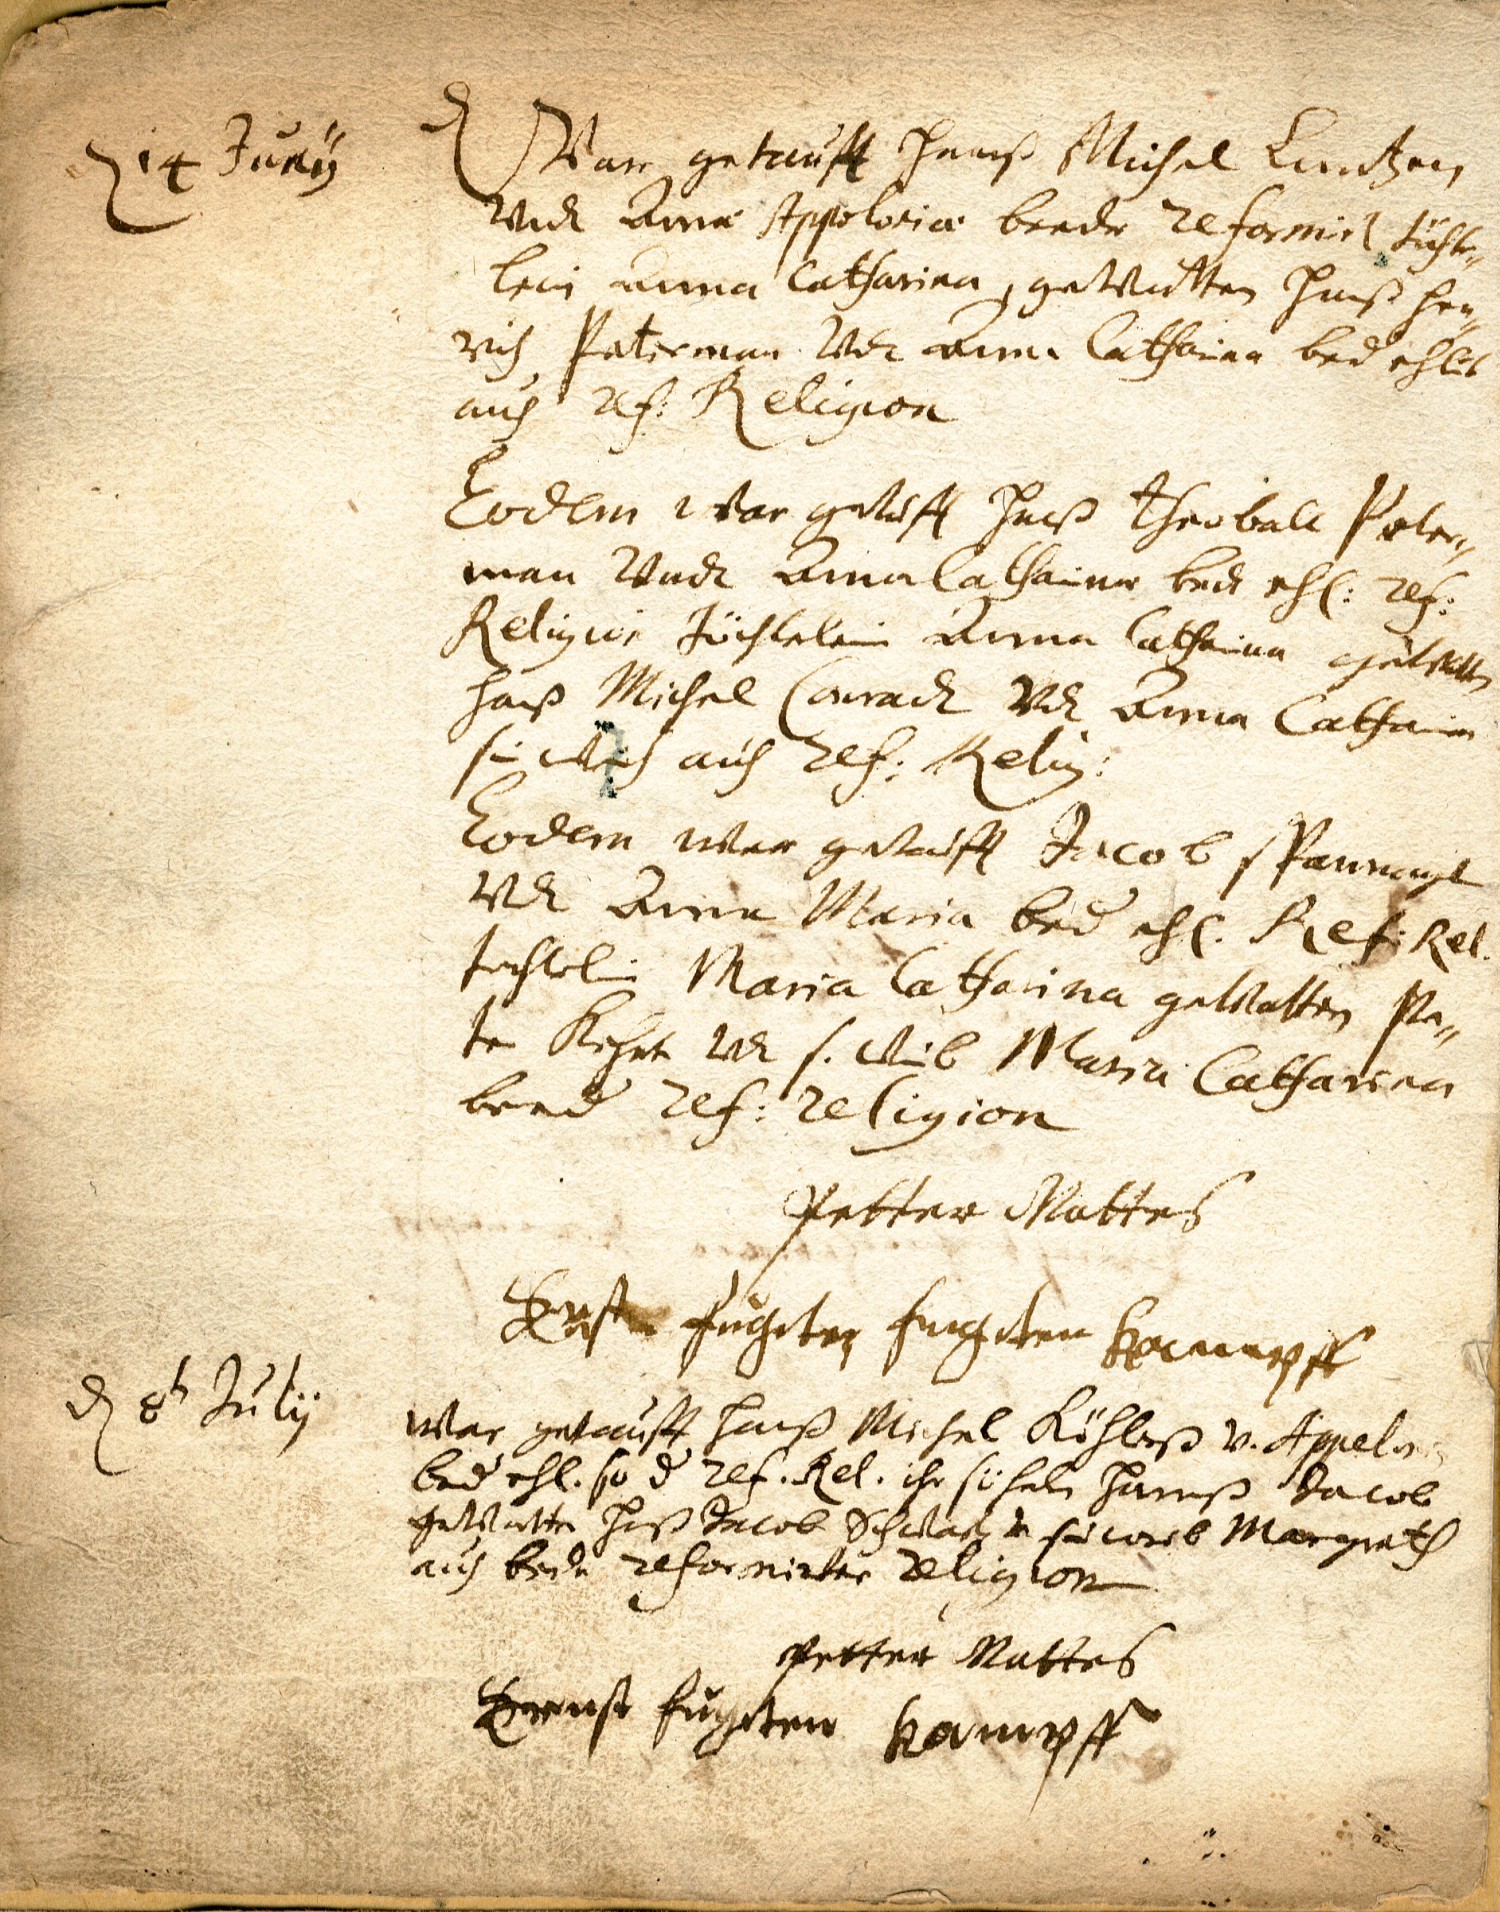 d 14 Junij
War getaufft Hanß Michel Luntzen
Undt Anna Appolonia beede reformirt töchte„
lein Anna Catharina, gevatten Hanß Hen„
rich Peterman Vdt Anna Catharina bed ehlt
auch ref: Religion
Eodem war getaufft Hanß Theobalt Peter„
man Undt Anna Catharina bede ehl: ref:
Religion töchtelein Anna Catharina gevatten
Hanß Michel Conradt Vdt Anna Catharina
auch ref: Relig:
Eodem war getaufft Jacob Spannagel
Vdt Anna Maria bed ehl. Ref: Rel.
tochtelin Maria Catharina gevatten Pe„
ter Vdt s. Weib Maria Catharina
beed ref: religion
Petter Mattes
Ernst Kampff
d 8t Julij
War getaufft Hanß Michel Köhlerß v. Appelon
bed ehl. ref. Rel. ihr söhnlein Hannß Jacob
gevatter Hanß Jacob Schwartz sein weib Margreth
auch bede reformirter religion
Petter Mattes
Ernst Kampff